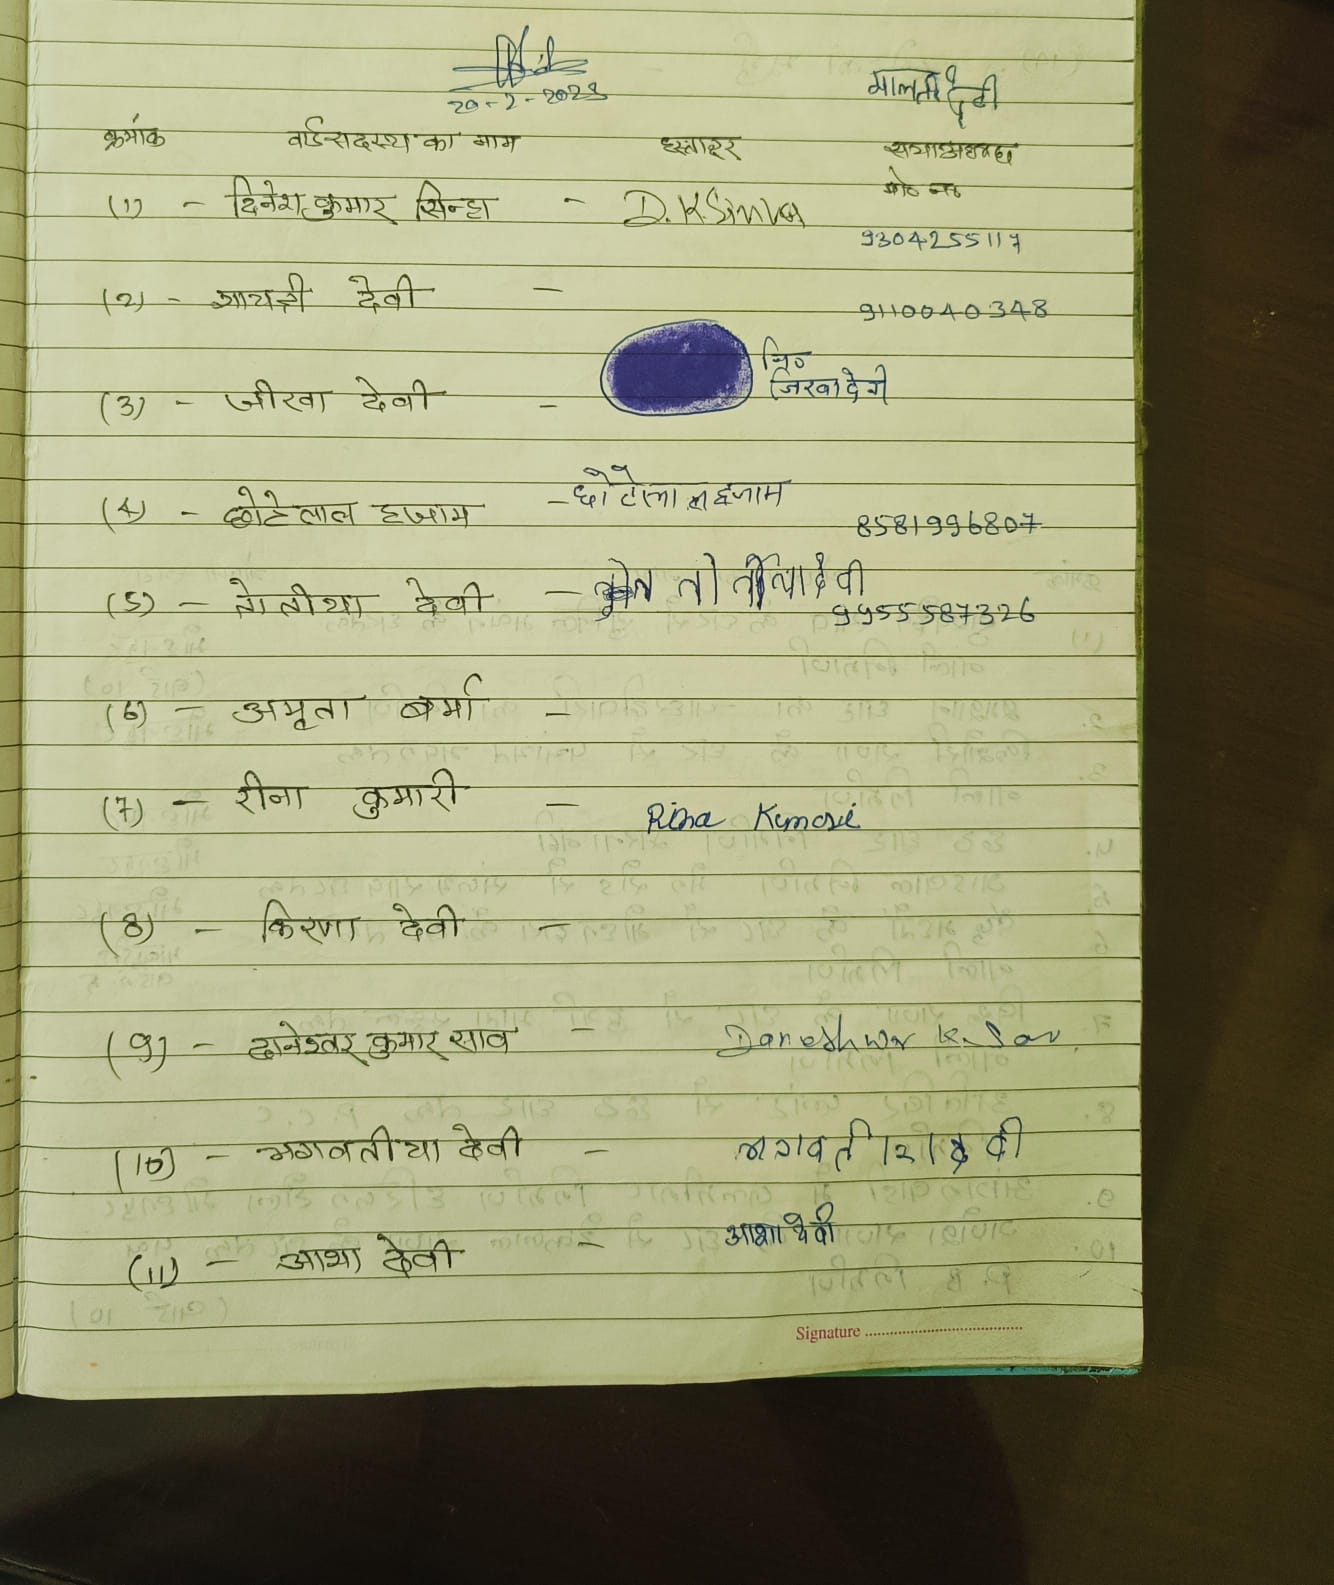 20-2-2023
मालती देवी
क्रमांक वार्ड सदस्य का नाम हस्ताक्षर सभाअध्यक्ष
मो० न०
(1) - दिनेश कुमार सिन्हा - D.K.Sinha
9304255117
(2) - गायत्री देवी -
9110040348
(3) - जीरवा देवी -
नि०
जिरवा देवी
(4) - छोटेलाल हजाम - छोटेलाल हजाम
8581996807
(5) - तोतीया देवी - तोतीया देवी
9955587326
(6) - अमृता बर्मा -
(7) - रीना कुमारी - Rina Kumari
(8) - किरण देवी -
(9) - दानेश्वर कुमार साव - Daneshwar K. Sav.
(10) - भगवतीया देवी - भगवतीया देवी
(11) - आशा देवी - आशा देवी
Signature